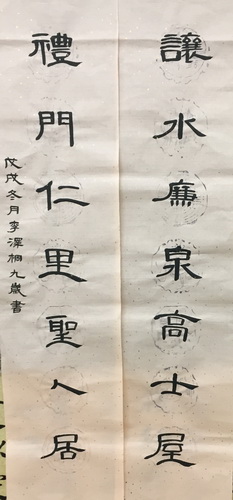 讓水廉泉高士屋
禮門仁里聖人居
戊戌冬月李澤桐九歲書